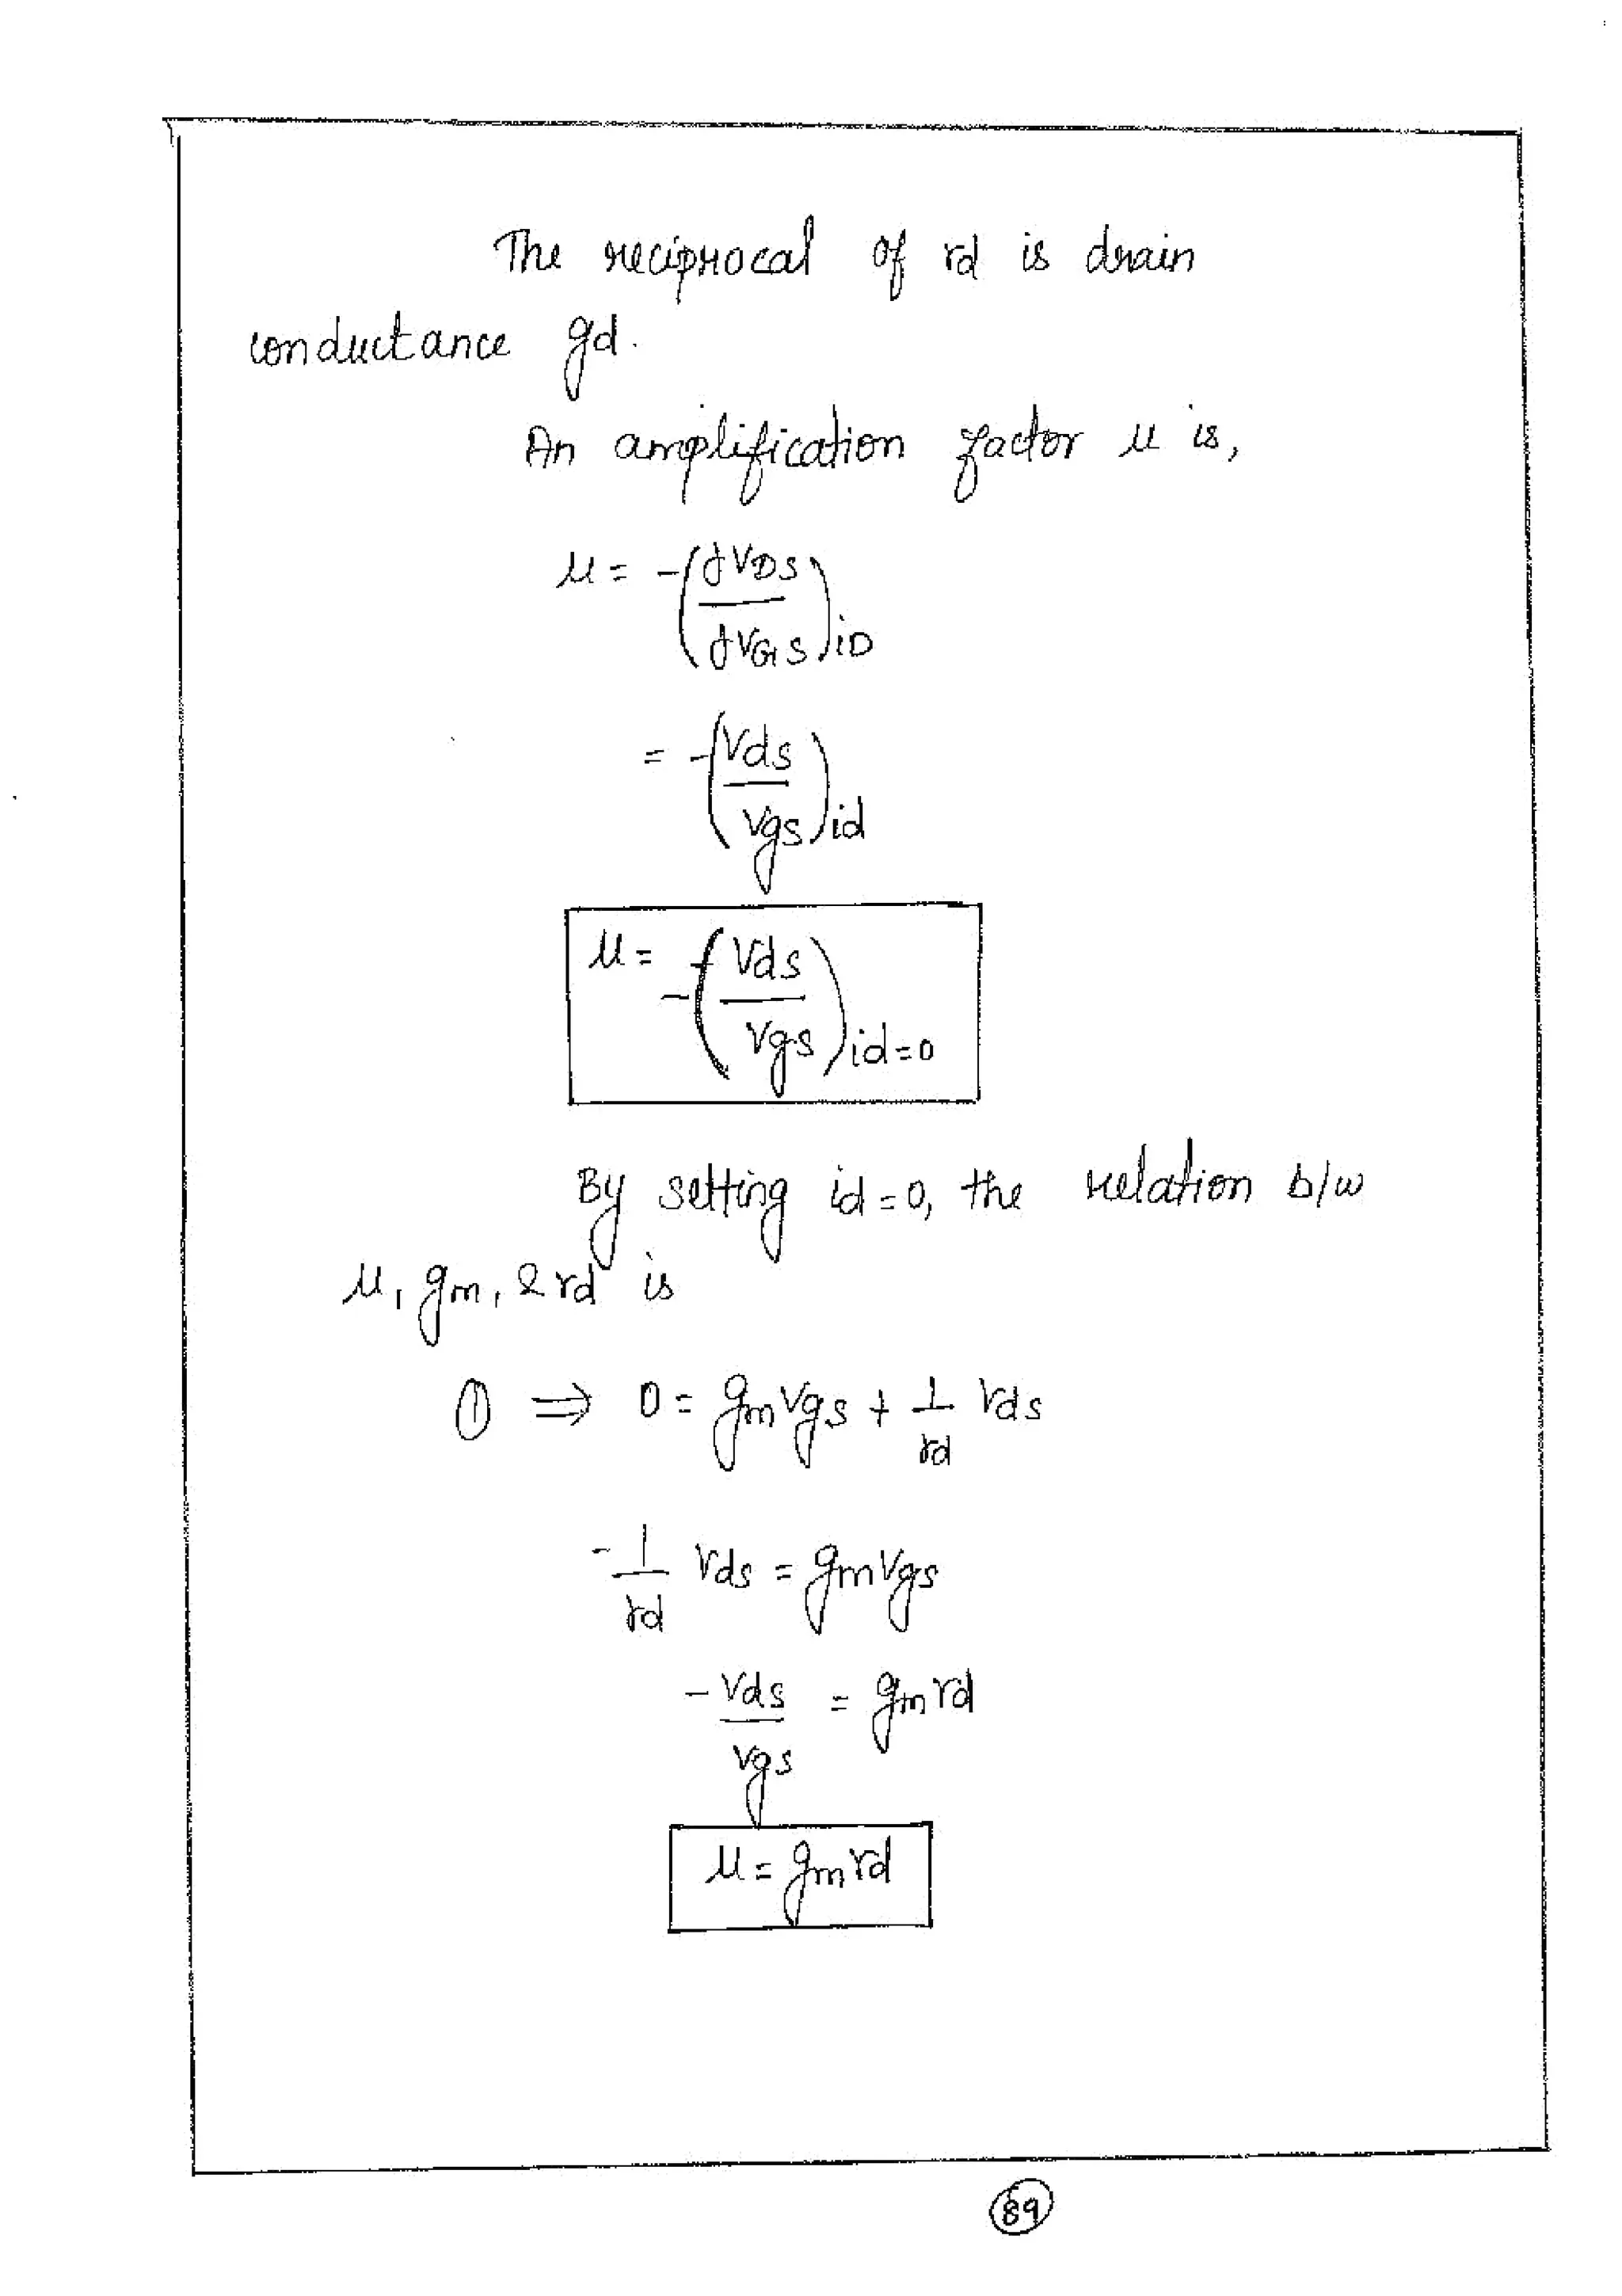 The reciprocal of rd is drain
conductance gd.
An amplification factor μ is,
μ = -(∂VDS / ∂VGS)iD
= -(Vds / Vgs)id
μ = -(Vds / Vgs)id=0
By setting id=0, the relation b/w
μ, gm, & rd is
① ⇒ 0 = gmVgs + 1/rd Vds
-1/rd Vds = gmVgs
-Vds/Vgs = gmrd
μ = gmrd
89